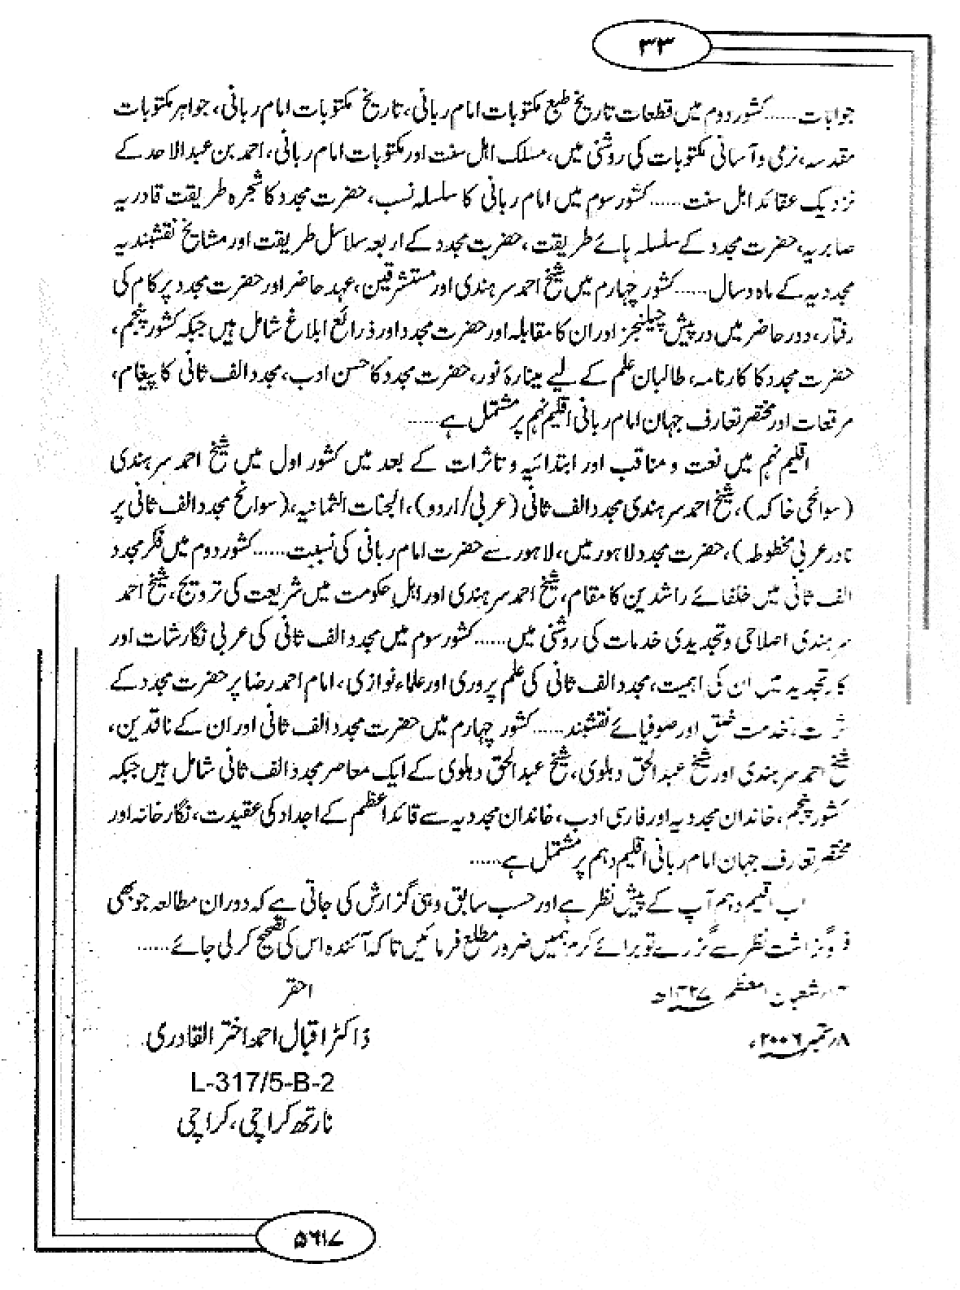 ۳۳
جوابات......کشور دوم میں قطعات تاریخ طبع مکتوبات امام ربانی، تاریخ مکتوبات امام ربانی، جواہر مکتوبات
مقدسہ، نرمی و آسانی مکتوبات کی روشنی میں، مسلک اہل سنت اور مکتوبات امام ربانی، احمد بن عبدالاحد کے
نزدیک عقائد اہل سنت......کشور سوم میں امام ربانی کا سلسلہ نسب، حضرت مجدد کا شجرہ طریقت قادریہ
صابریہ، حضرت مجدد کے سلسلہ ہائے طریقت، حضرت مجدد کے اربعہ سلاسل طریقت اور مشایخ نقشبندیہ
مجددیہ کے ماہ و سال......کشور چہارم میں شیخ احمد سرہندی اور مستشرقین، عہد حاضر اور حضرت مجدد پر کام کی
رفتار، دور حاضر میں درپیش چیلنجز اور ان کا مقابلہ اور حضرت مجدد اور ذرائع ابلاغ شامل ہیں جبکہ کشور پنجم،
حضرت مجدد کا کارنامہ، طالبان علم کے لیے مینارۂ نور، حضرت مجدد کا حسن ادب، مجدد الف ثانی کا پیغام،
مرقعات اور مختصر تعارف جہان امام ربانی اقلیم نہم پر مشتمل ہے......
اقلیم نہم میں نعت و مناقب اور ابتدائیہ و تاثرات کے بعد میں کشور اول میں شیخ احمد سرہندی
(سوانحی خاکہ)، شیخ احمد سرہندی مجدد الف ثانی (عربی/اردو)، الجنات الثمانیہ، (سوانح مجدد الف ثانی پر
نادر عربی مخطوطہ)، حضرت مجدد لاہور میں، لاہور سے حضرت امام ربانی کی نسبت......کشور دوم میں فکر مجدد
الف ثانی میں خلفائے راشدین کا مقام، شیخ احمد سرہندی اور اہل حکومت میں شریعت کی ترویج، شیخ احمد
سرہندی اصلاحی و تجدیدی خدمات کی روشنی میں......کشور سوم میں مجدد الف ثانی کی عربی نگارشات اور
کار تجدید میں ان کی اہمیت، مجدد الف ثانی کی علم پروری اور علماء نوازی، امام احمد رضا پر حضرت مجدد کے
خدمت خلق اور صوفیائے نقشبند......کشور چہارم میں حضرت مجدد الف ثانی اور ان کے ناقدین،
شیخ احمد سرہندی اور شیخ عبدالحق دہلوی، شیخ عبدالحق دہلوی کے ایک معاصر مجدد الف ثانی شامل ہیں جبکہ
کشور پنجم، خاندان مجددیہ اور فارسی ادب، خاندان مجددیہ سے قائد اعظم کے اجداد کی عقیدت، نگار خانہ اور
مختصر تعارف جہان امام ربانی اقلیم دہم پر مشتمل ہے......
اب اقلیم دہم آپ کے پیش نظر ہے اور حسب سابق وہی گزارش کی جاتی ہے کہ دوران مطالعہ جو بھی
فروگزاشت نظر سے گزرے تو برائے کرم ہمیں ضرور مطلع فرمائیں تاکہ آئندہ اس کی تصحیح کر لی جائے......
شعبان المعظم ۱۴۲۷ھ
احقر
۸ ستمبر ۲۰۰۶ء
ڈاکٹر اقبال احمد اختر القادری
L-317/5-B-2
نارتھ کراچی، کراچی
۵۶۱۷